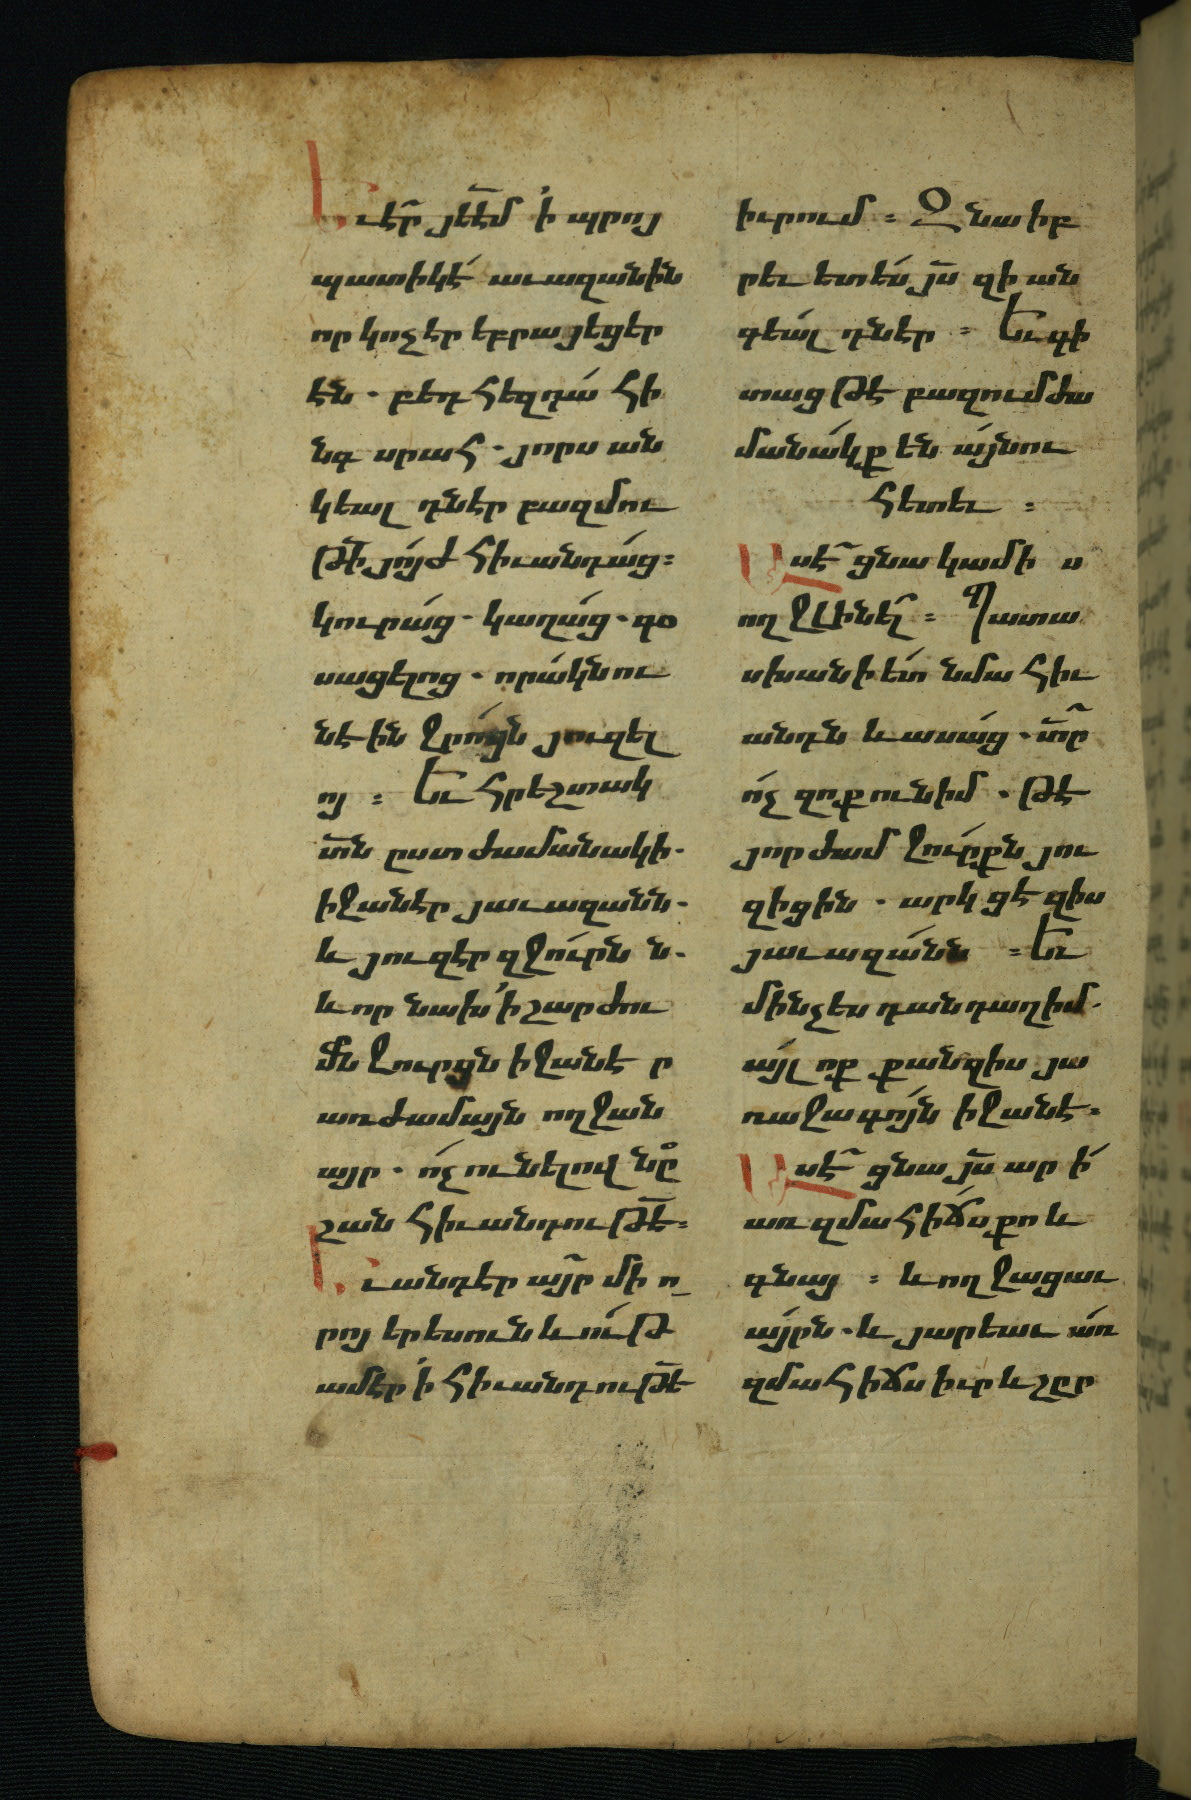 Եւ էր յեէմ ՛ի պրոյ
պատիկէ́ աւազանին
որ կոչէր եբրայեցեր
էն . բեդհեզդա́ հի
նգ սրահ . յորս ան
կեալ դնէր բազմու
թի յո́յժ հիւանդա́ց :
կուրա́ց . կաղա́ց . գօ
սացելոց . որա́կնու
նէին ջրո́ցն յուզել
ոյ : Եւ հրեշտակ
տն ըստ ժամանակի .
իջանէր յաւազանն .
և յուզէր զջու́րն ն .
և որ նախ ՛ի շարժու
մն ջուրցն իջանէր
առժամայն ողջան
այր . ո́չ ունելով նը
շան հիւանդութե :
Եւ անդ էր այր մի ո
րոյ երեսուն և ու́թ
ամ էր ՛ի հիւանդութե
իւրում : Զնա իբ
րեւ ետե́ս յս զի ան
գեա́լ դնէր : Եւ գի
տաց թէ բազում ժա
մանա́կք են ա́յնու
հետեւ :
Ասէ ցնա կամի ս
ողջ լինել : Պատա
սխանի ե́տ նմա հիւ
անդն և ասա́ց . տր
ո́չ զոք ունիմ . թէ
յորժամ ջու́րքն յու
զիցին . արկցէ զիս
յաւազա́նն : Եւ
մինչ ես դանդաղիմ .
ա́յլ ոք քան զիս յա
ռաջագո́յն իջանէ :
Ասէ ցնա յս արի́
առ զմահի́ճս քո և
գնայ : և ողջացաւ
ա́յրն . և յարեաւ ա́ռ
զմահիճս իւր և շըր